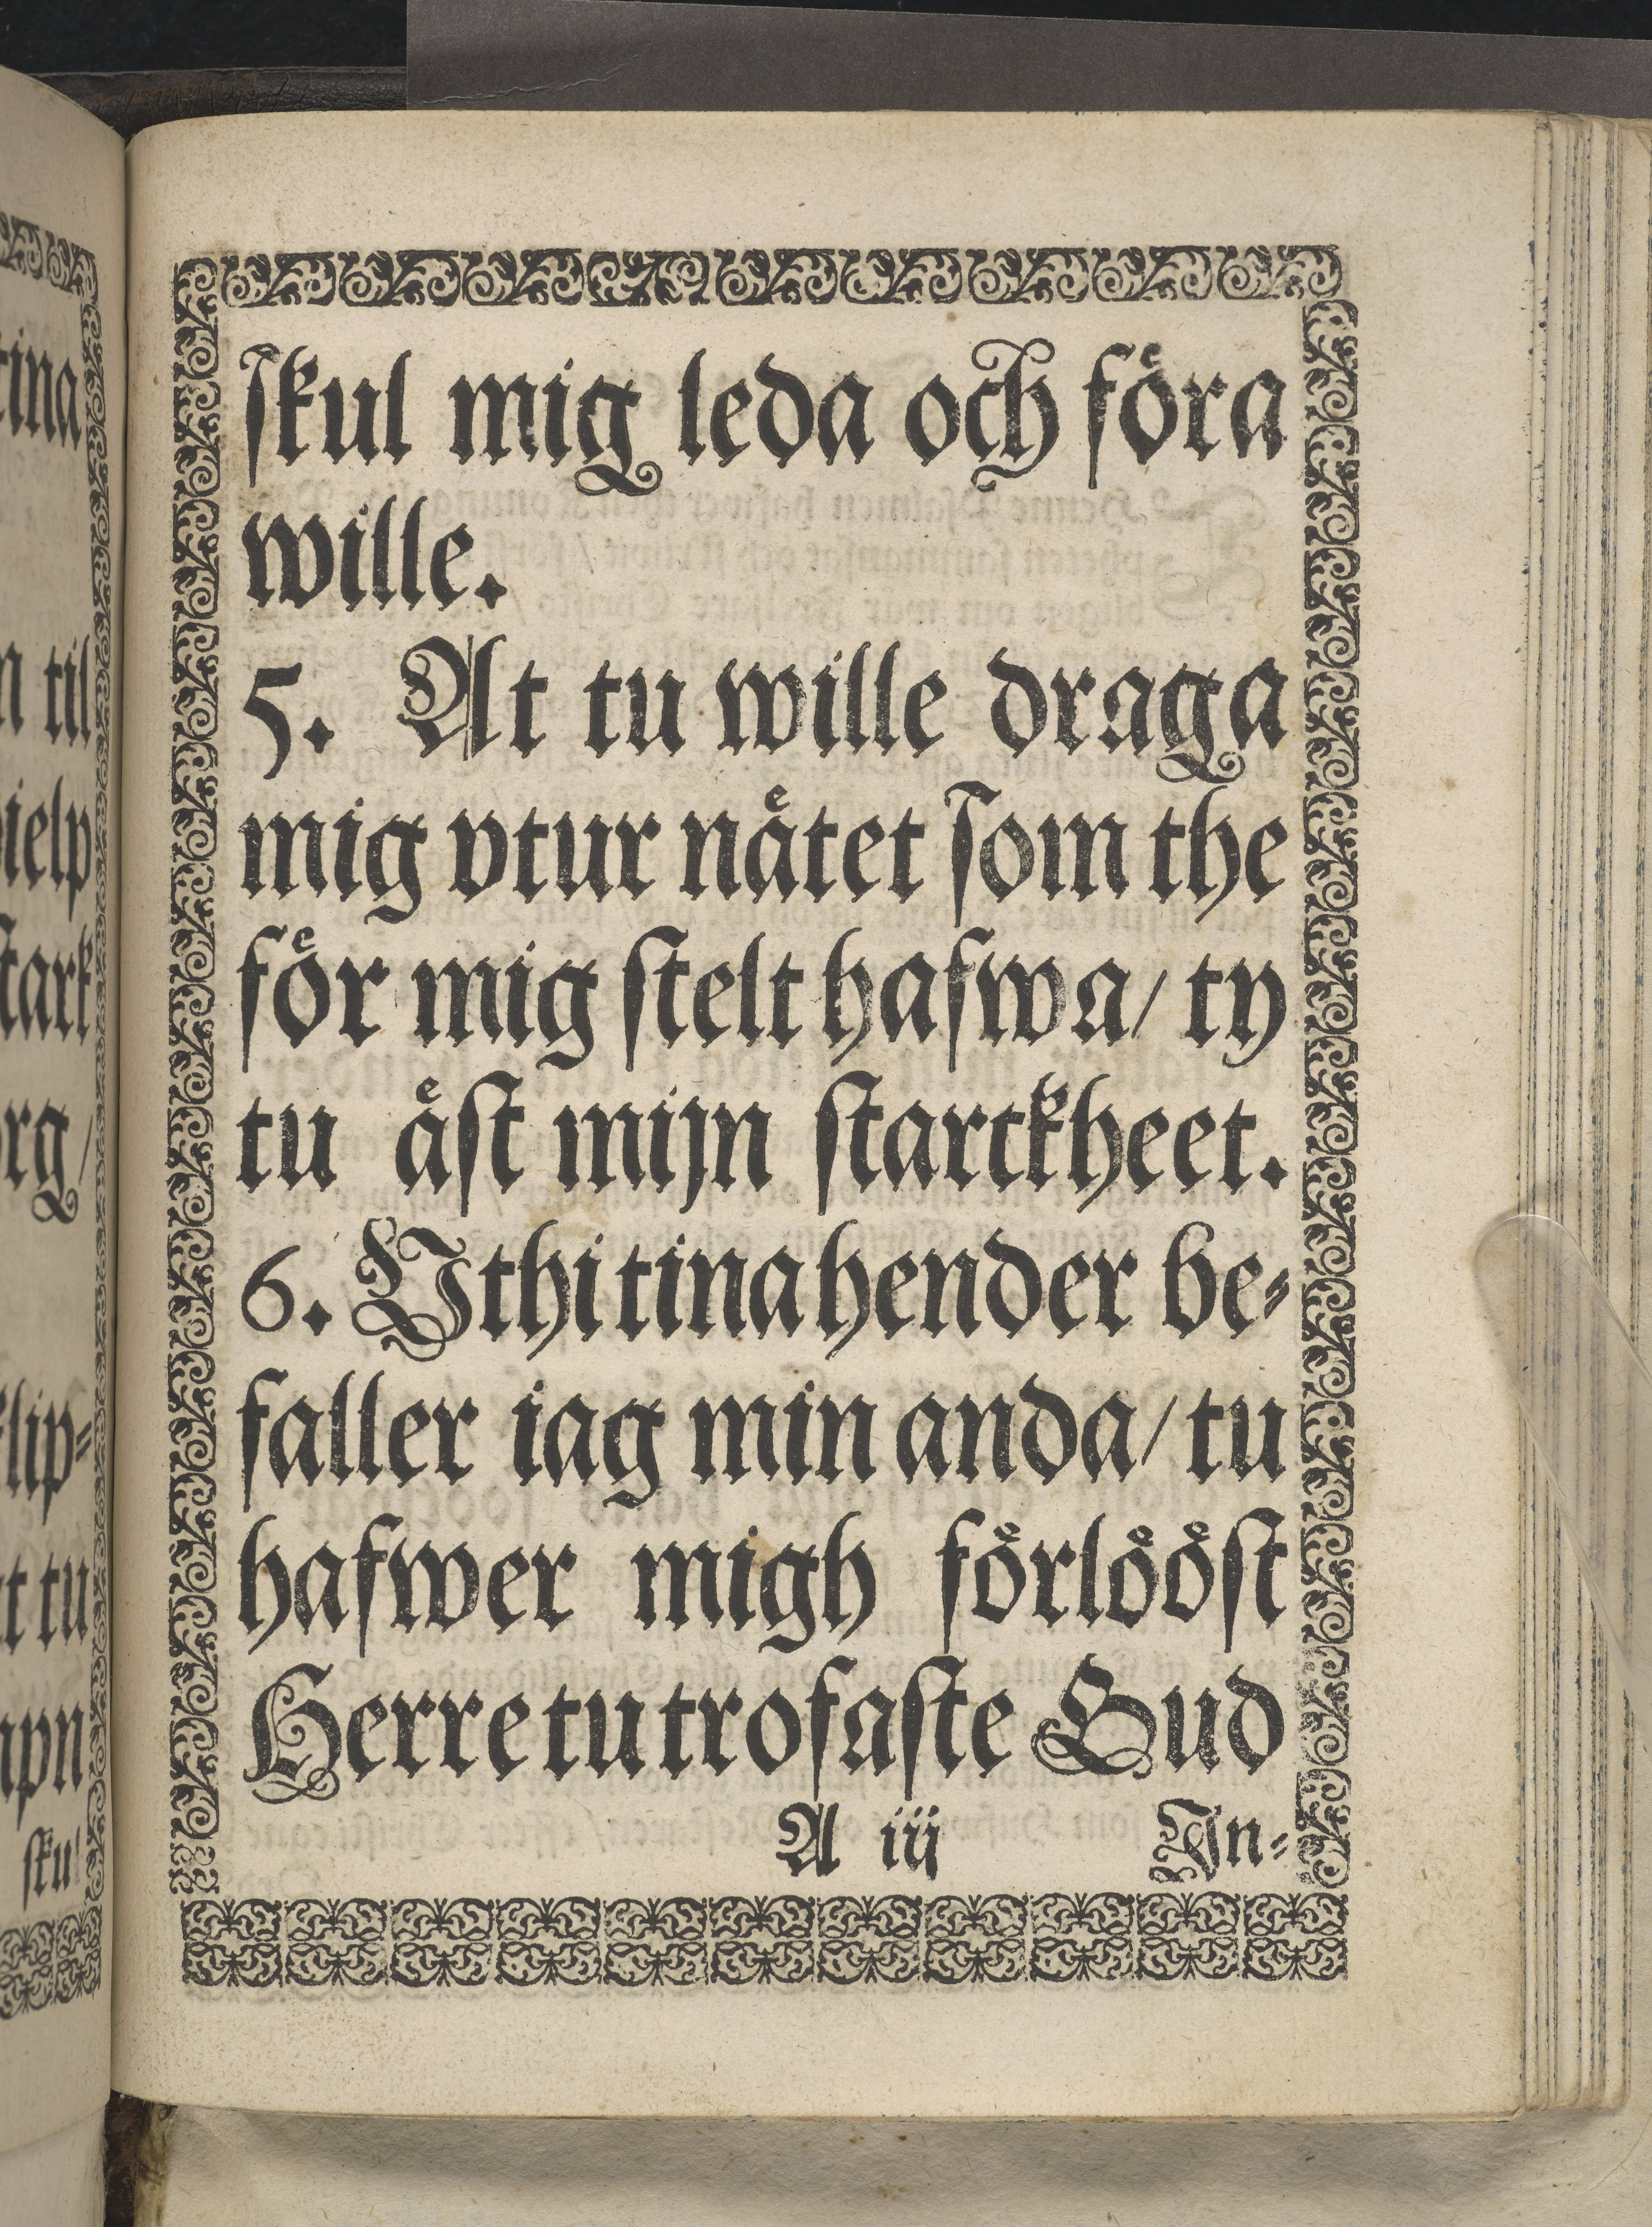 ſkul mig leda och föra
wille.
5. At tu wille draga
mig vtur nätet ſom the
för mig ſtelt hafwa/ ty
tu äſt mijn ſtarckheet.
6. Vthi tina hender be⸗
faller iag min anda/ tu
hafwer migh förlööſt
Herre tu trofaſte Gud
A iij In⸗